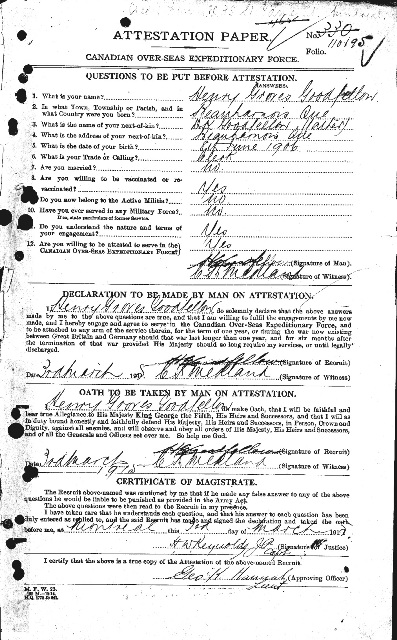 ATTESTATION PAPER.
No. 330
110195
Folio.
CANADIAN OVER-SEAS EXPEDITIONARY FORCE.
QUESTIONS TO BE PUT BEFORE ATTESTATION.
(ANSWERS)
1. What is your name? Henry Groves Goodfellow
2. In what Town, Township or Parish, and in what Country were you born? Beauharnois Que
3. What is the name of your next-of-kin? Goodfellow
4. What is the address of your next-of-kin? Beauharnois Que
5. What is the date of your birth? June
6. What is your Trade or Calling? Clerk
7. Are you married? No
8. Are you willing to be vaccinated or re-vaccinated? Yes
9. Do you now belong to the Active Militia? No
10. Have you ever served in any Military Force? No
If so, state particulars of former Service.
11. Do you understand the nature and terms of your engagement? Yes
12. Are you willing to be attested to serve in the CANADIAN OVER-SEAS EXPEDITIONARY FORCE? Yes
(Signature of Man).
(Signature of Witness).
DECLARATION TO BE MADE BY MAN ON ATTESTATION.
I, Henry Groves Goodfellow, do solemnly declare that the above answers
made by me to the above questions are true, and that I am willing to fulfil the engagements by me now
made, and I hereby engage and agree to serve in the Canadian Over-Seas Expeditionary Force, and
to be attached to any arm of the service therein, for the term of one year, or during the war now existing
between Great Britain and Germany should that war last longer than one year, and for six months after
the termination of that war provided His Majesty should so long require my services, or until legally
discharged.
(Signature of Recruit)
Date 3rd March 191 (Signature of Witness)
OATH TO BE TAKEN BY MAN ON ATTESTATION.
I, Henry Groves Goodfellow, do make Oath, that I will be faithful and
bear true Allegiance to His Majesty King George the Fifth, His Heirs and Successors, and that I will as
in duty bound honestly and faithfully defend His Majesty, His Heirs and Successors, in Person, Crown and
Dignity, against all enemies, and will observe and obey all orders of His Majesty, His Heirs and Successors,
and of all the Generals and Officers set over me. So help me God.
(Signature of Recruit)
Date 3rd March 191 (Signature of Witness)
CERTIFICATE OF MAGISTRATE.
The Recruit above-named was cautioned by me that if he made any false answer to any of the above
questions he would be liable to be punished as provided in the Army Act.
The above questions were then read to the Recruit in my presence.
I have taken care that he understands each question, and that his answer to each question has been
duly entered as replied to, and the said Recruit has made and signed the declaration and taken the oath
before me, at Montreal this 3rd day of March 191
(Signature of Justice)
I certify that the above is a true copy of the Attestation of the above-named Recruit.
Geo. H. Hannah (Approving Officer)
Lieut
M. F. W. 23.